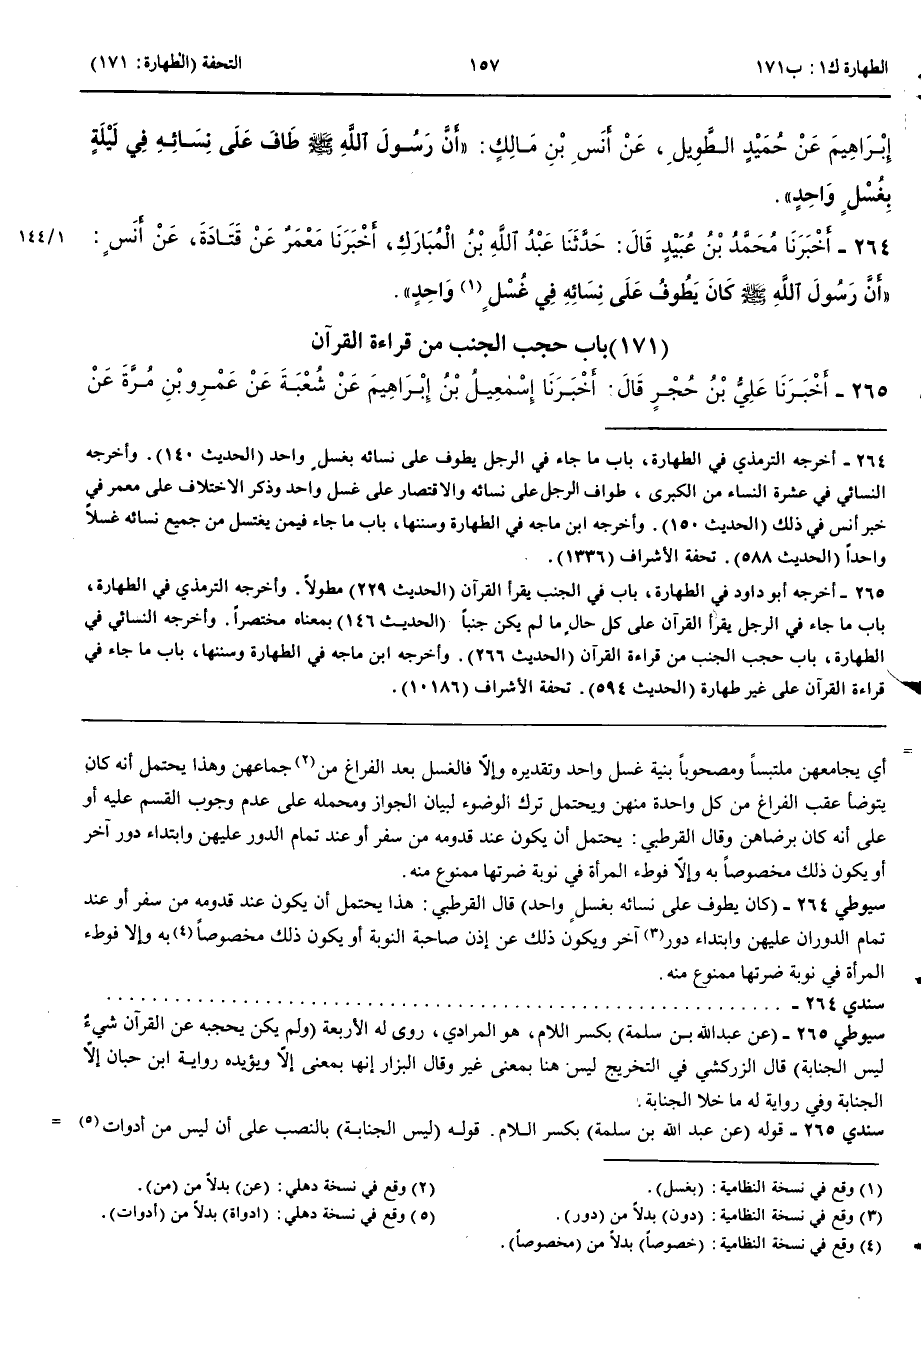 الطهارة ك١: ب١٧١ ١٥٧ التحفة (الطهارة: ١٧١)
إِبْرَاهِيمَ عَنْ حُمَيْدٍ الطَّوِيلِ، عَنْ أَنَسِ بْنِ مَالِكٍ: «أَنَّ رَسُولَ اللَّهِ ﷺ طَافَ عَلَى نِسَائِهِ فِي لَيْلَةٍ
بِغُسْلٍ وَاحِدٍ».
٢٦٤ ـ أَخْبَرَنَا مُحَمَّدُ بْنُ عُبَيْدٍ قَالَ: حَدَّثَنَا عَبْدُ اللَّهِ بْنُ الْمُبَارَكِ، أَخْبَرَنَا مَعْمَرٌ عَنْ قَتَادَةَ، عَنْ أَنَسٍ: ١٤٤/١
«أَنَّ رَسُولَ اللَّهِ ﷺ كَانَ يَطُوفُ عَلَى نِسَائِهِ فِي غُسْلٍ(١) وَاحِدٍ».
(١٧١) باب حجب الجنب من قراءة القرآن
٢٦٥ ـ أَخْبَرَنَا عَلِيُّ بْنُ حُجْرٍ قَالَ: أَخْبَرَنَا إِسْمٰعِيلُ بْنُ إِبْرَاهِيمَ عَنْ شُعْبَةَ عَنْ عَمْرِو بْنِ مُرَّةَ عَنْ
٢٦٤ ـ أخرجه الترمذي في الطهارة، باب ما جاء في الرجل يطوف على نسائه بغسلٍ واحد (الحديث ١٤٠). وأخرجه
النسائي في عشرة النساء من الكبرى، طواف الرجل على نسائه والاقتصار على غسل واحد وذكر الاختلاف على معمر في
خبر أنس في ذلك (الحديث ١٥٠). وأخرجه ابن ماجه في الطهارة وسننها، باب ما جاء فيمن يغتسل من جميع نسائه غسلاً
واحداً (الحديث ٥٨٨). تحفة الأشراف (١٣٣٦).
٢٦٥ ـ أخرجه أبو داود في الطهارة، باب في الجنب يقرأ القرآن (الحديث ٢٢٩) مطولاً. وأخرجه الترمذي في الطهارة،
باب ما جاء في الرجل يقرأ القرآن على كل حالٍ ما لم يكن جنباً (الحديث ١٤٦) بمعناه مختصراً. وأخرجه النسائي في
الطهارة، باب حجب الجنب من قراءة القرآن (الحديث ٢٦٦). وأخرجه ابن ماجه في الطهارة وسننها، باب ما جاء في
قراءة القرآن على غير طهارة (الحديث ٥٩٤). تحفة الأشراف (١٠١٨٦).
=
أي يجامعهن ملتبساً ومصحوباً بنية غسل واحد وتقديره وإلاّ فالغسل بعد الفراغ من(٢) جماعهن وهذا يحتمل أنه كان
يتوضأ عقب الفراغ من كل واحدة منهن ويحتمل ترك الوضوء لبيان الجواز ومحمله على عدم وجوب القسم عليه أو
على أنه كان برضاهن وقال القرطبي: يحتمل أن يكون عند قدومه من سفر أو عند تمام الدور عليهن وابتداء دور آخر
أو يكون ذلك مخصوصاً به وإلاّ فوطء المرأة في نوبة ضرتها ممنوع منه.
سيوطي ٢٦٤ ـ (كان يطوف على نسائه بغسلٍ واحد) قال القرطبي: هذا يحتمل أن يكون عند قدومه من سفر أو عند
تمام الدوران عليهن وابتداء دور(٣) آخر ويكون ذلك عن إذن صاحبة النوبة أو يكون ذلك مخصوصاً(٤) به وإلا فوطء
المرأة في نوبة ضرتها ممنوع منه.
سندي ٢٦٤ ـ . . . . . . . . . . . . . . . . . . . . . . . . . . . . . . . . . . . . . . . .
سيوطي ٢٦٥ ـ (عن عبدالله بن سلمة) بكسر اللام، هو المرادي، روى له الأربعة (ولم يكن يحجبه عن القرآن شيءٌ
ليس الجنابة) قال الزركشي في التخريج ليس هنا بمعنى غير وقال البزار إنها بمعنى إلاّ ويؤيده رواية ابن حبان إلاّ
الجنابة وفي رواية له ما خلا الجنابة.
سندي ٢٦٥ ـ قوله (عن عبد الله بن سلمة) بكسر اللام. قوله (ليس الجنابة) بالنصب على أن ليس من أدوات(٥) =
(١) وقع في نسخة النظامية: (بغسل). (٢) وقع في نسخة دهلي: (عن) بدلاً من (من).
(٣) وقع في نسخة النظامية: (دون) بدلاً من (دور). (٥) وقع في نسخة دهلي: (ادواة) بدلاً من (أدوات).
(٤) وقع في نسخة النظامية: (خصوصاً) بدلاً من (مخصوصاً).